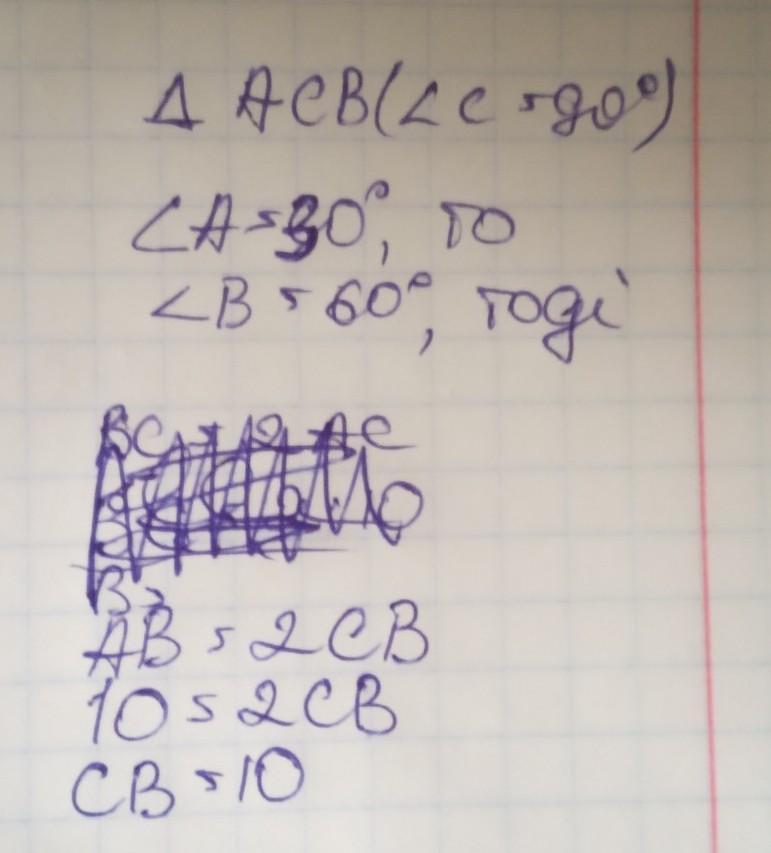 Δ ACB(∠C =90°)
∠A=30°, то
∠B = 60°, тоді
AB = 2CB
10 = 2CB
CB = 10